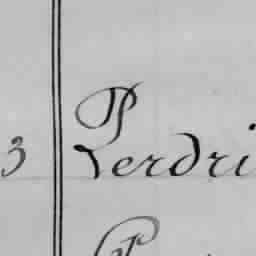 3 Perdri